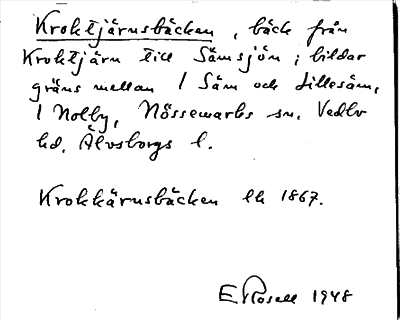 Kroktjärnsbäcken, bäck från
Kroktjärn till Sämsjön; bildar
gräns mellan 1 Säm och Lillesäm,
1 Nolby, Nössemarks sn. Vedbo
hd. Älvsborgs l.
Krokkärnsbäcken Ek 1867.
E Rosell 1948